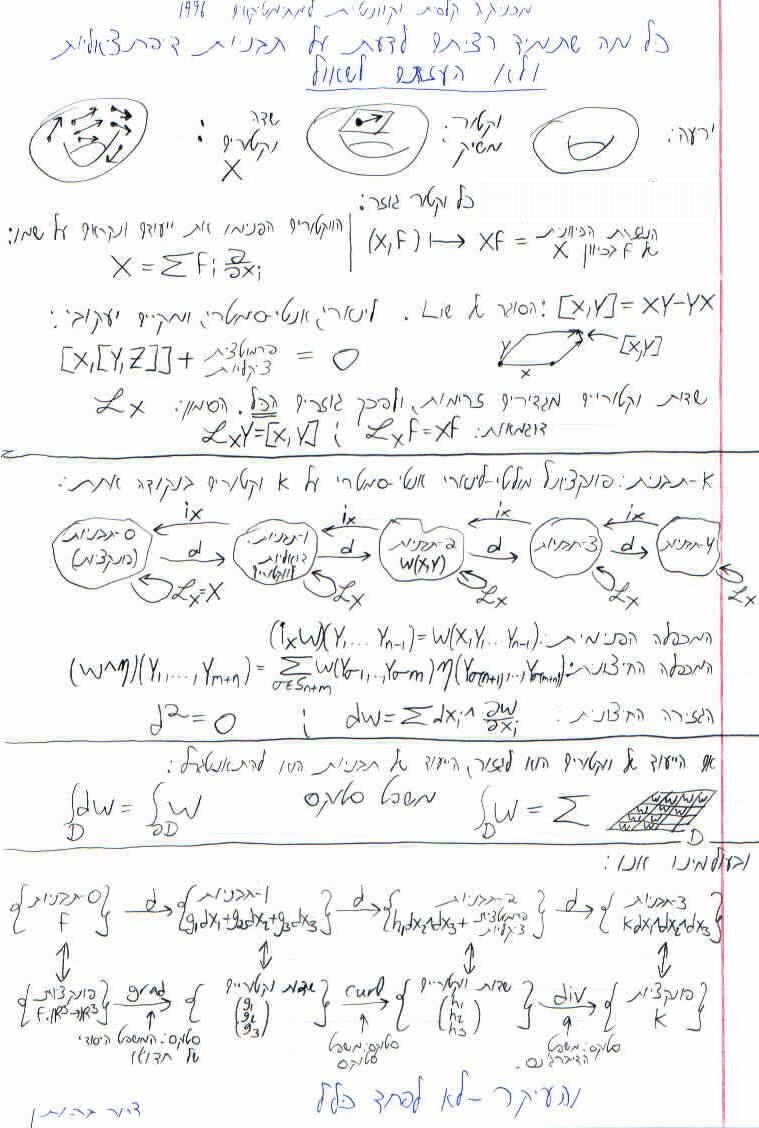 מכניקה קלסית וקוונטית למתמטיקאים 1996
כל מה שתמיד רציתם לדעת על תבניות דיפרנציאליות
ולא העזתם לשאול
יריעה:
וקטור משיק:
שדה וקטורים X:
כל וקטור גוזר:
(X,F) ⟼ XF = הנגזרת הכיוונית של F בכיוון X
הווקטורים הפנימו את ייעודם ונקראים על שמו:
X = ∑ Fᵢ ∂/∂xᵢ
[X,Y] = XY-YX :הסוגר של שו"ו. לינארי, אנטי-סמטרי, ומקיים יעקובי:
[X,[Y,Z]] + פרמוטציות ציקליות = 0
Y
X
[X,Y]
שדות וקטוריים מגדירים זרימות, ולפיכך גוזרים הכל. הסימון: ℒX
דוגמאות: ℒX F = XF ; ℒX Y = [X,Y]
K-תבנית: פונקציונל מולטי-לינארי אנטי-סמטרי על K וקטורים בנקודה אחת:
iX iX iX iX
0-תבניות (פונקציות)
1-תבניות: דואליות לווקטורים
2-תבניות W(X,Y)
3-תבניות
4-תבניות
d d d d
ℒX=X ℒX ℒX ℒX ℒX
המכפלה הפנימית: (iXW)(Y₁,...Yn-1) = W(X,Y₁...Yn-1)
המכפלה החיצונית: (W∧η)(Y₁,...,Ym+n) = ∑σ∈Sn+m W(Yσ1,...,Yσm) η(Yσ(m+1),...,Yσ(m+n))
הגזירה החיצונית: dW = ∑dxᵢ∧ ∂W/∂xᵢ ; d²=0
אם הייעוד של וקטורים הוא לגזור, הייעוד של תבניות הוא להתאנטגרל:
∫D W = ∑ W W W W D
משפט סטוקס
∫D dW = ∫∂D W
ובעולמינו אנו:
{0-תבניות F} d {1-תבניות g₁dx₁+g₂dx₂+g₃dx₃} d {2-תבניות h₁dx₂∧dx₃+ פרמוטציות ציקליות} d {3-תבניות Kdx₁∧dx₂∧dx₃}
{פונקציות F:ℝ³→ℝ³} grad {שדות וקטוריים (g₁ g₂ g₃)} curl {שדות וקטוריים (h₁ h₂ h₃)} div {פונקציות K}
סטוקס: המשפט היסודי של חדו"א
סטוקס: משפט סטוקס
סטוקס: משפט הדיברגנס.
והעיקר - לא לפחד כלל
דרור בר-נתן